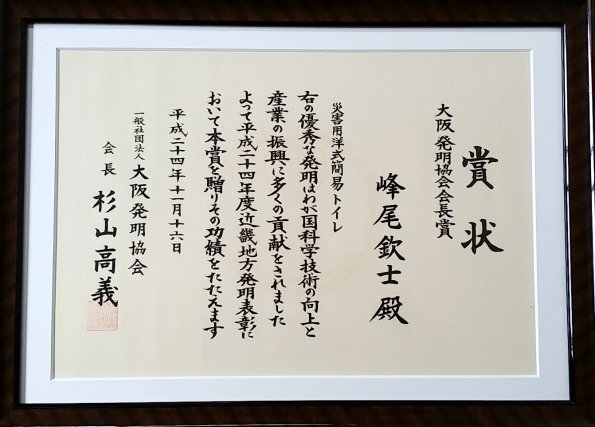 賞状
大阪発明協会会長賞
峰尾欽士殿
災害用洋式簡易トイレ
右の優秀な発明はわが国科学技術の向上と
産業の振興に多くの貢献をされました
よって平成二十四年度近畿地方発明表彰に
おいて本賞を贈りその功績をたたえます
平成二十四年十一月十六日
一般社団法人大阪発明協会
会長 杉山高義